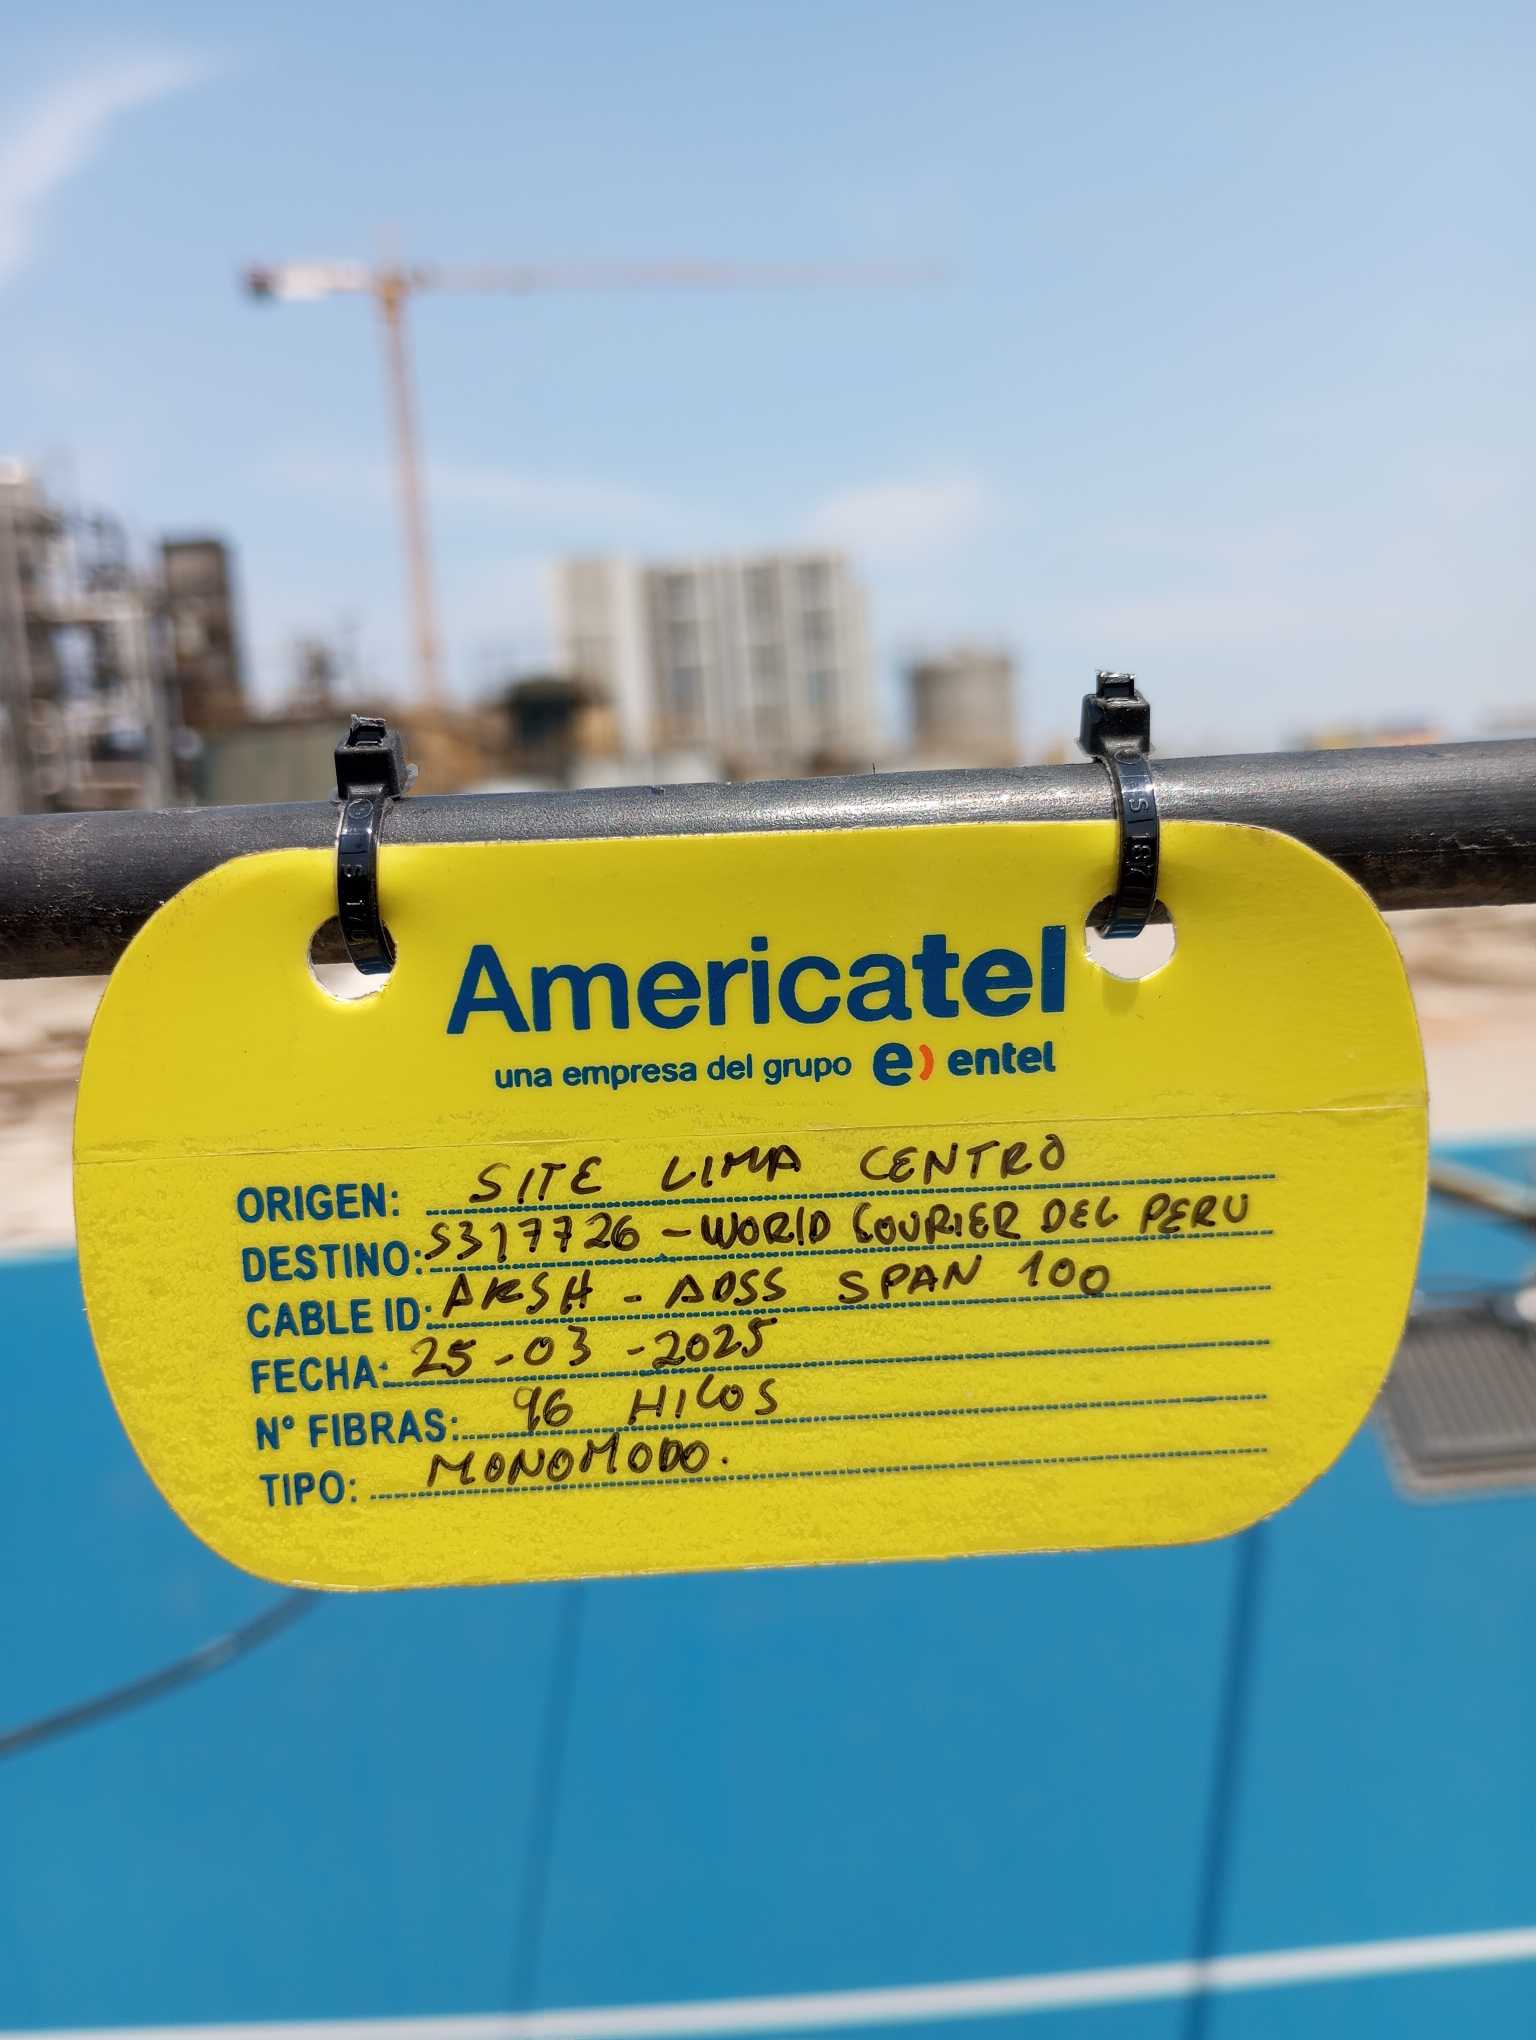 Americatel
una empresa del grupo e) entel
ORIGEN: SITE LIMA CENTRO
DESTINO: S317726 - WORLD COURIER DEL PERU
CABLE ID: AKSH - ADSS SPAN 100
FECHA: 25-03-2025
N° FIBRAS: 96 HILOS
TIPO: MONOMODO.